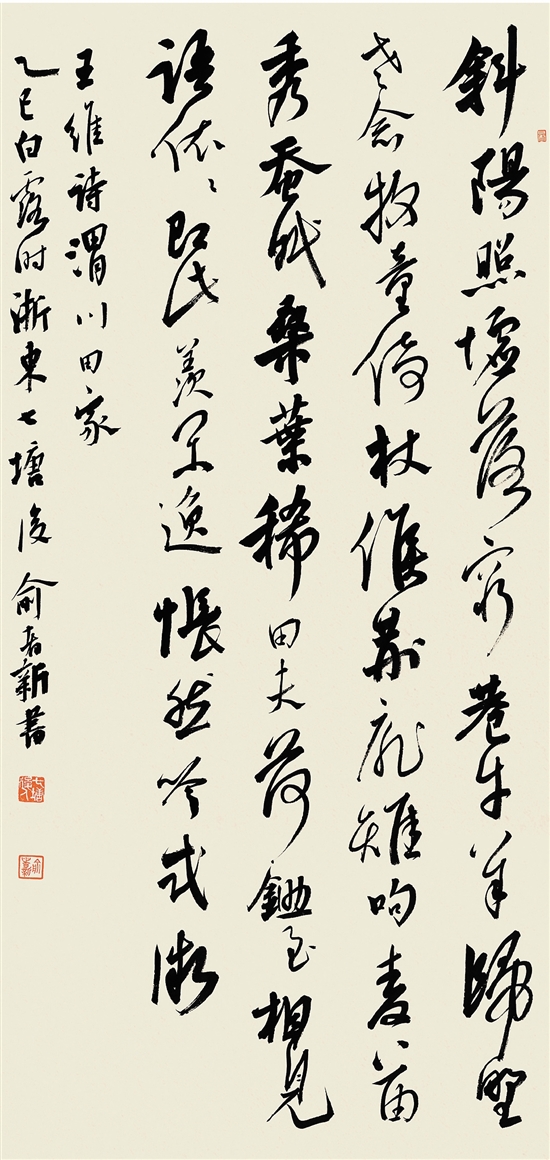 斜陽照墟落窮巷牛羊歸野
老念牧童倚杖候荆扉雉呴麦苗
秀蚕眠桑葉稀田夫荷鋤至相見
語依〻即此羨闲逸悵然吟式微
王維詩渭川田家
乙巳白露时浙東七塘後俞春新書